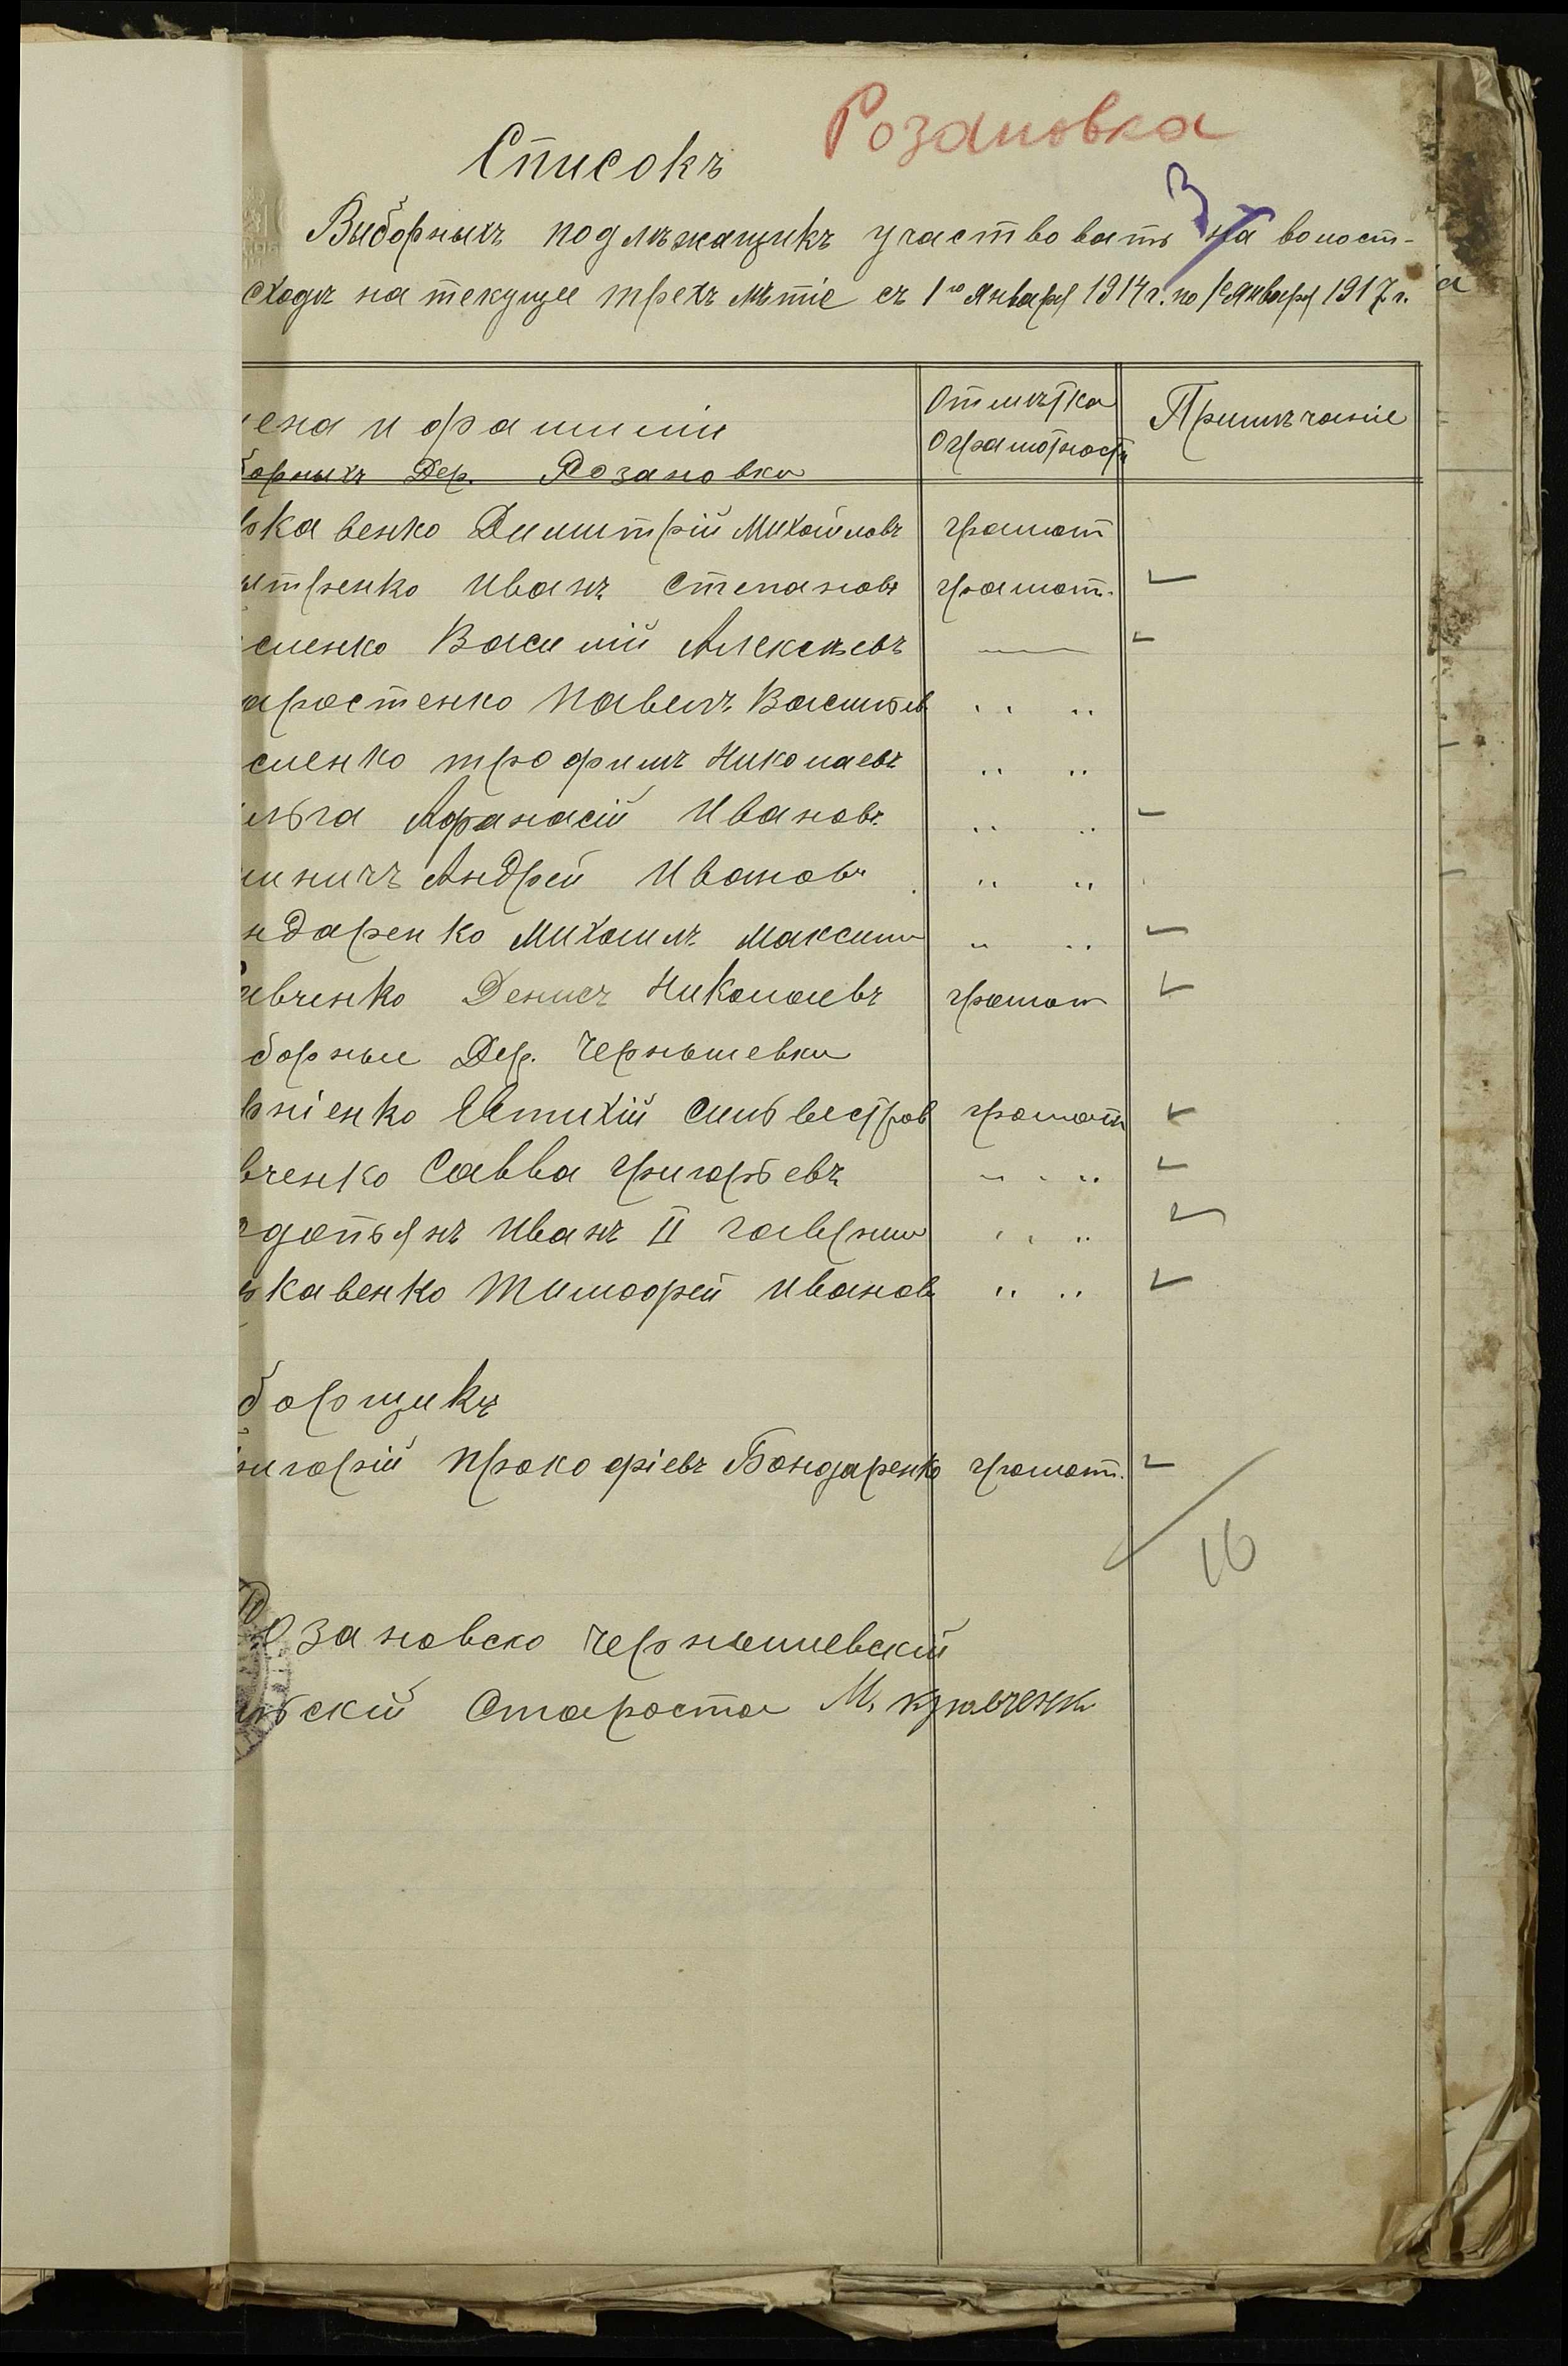 Розановка
Списокъ
3
Выборныхъ подлѣжащихъ участвовать на волост-
сходъ на текущее трехъ лѣтіе съ 1го Января 1914 г. по 1е Января 1917 г.
ена и фамиліи Отмѣтка Примѣчаніе
О грамотност
борныхъ Дер. Розановки
ькавенко Димитрій Михайловъ грамот
итренко Иванъ Степановъ грамот.
сленко Василій Алексѣевъ —
аростенко Павелъ Васильев " "
сленко трофимъ Николаевъ " "
льга Афанасій Ивановъ " "
иничъ Андрей Ивановъ " "
ндаренко Михаилъ Максимъ " "
авченко Денисъ Николаевъ грамот
борные Дер. Чернышевки
рніенко Евтихій Сильвестров грамотн
вченко Савва Григорьевъ " "
Иванъ II Гаврил " "
ькавенко Тимофей Иванов " "
борщикъ
ригорій Прокофіевъ Бондаренко грамотн.
16
озановско Чернышевскій
льскій Староста М. Кравченк